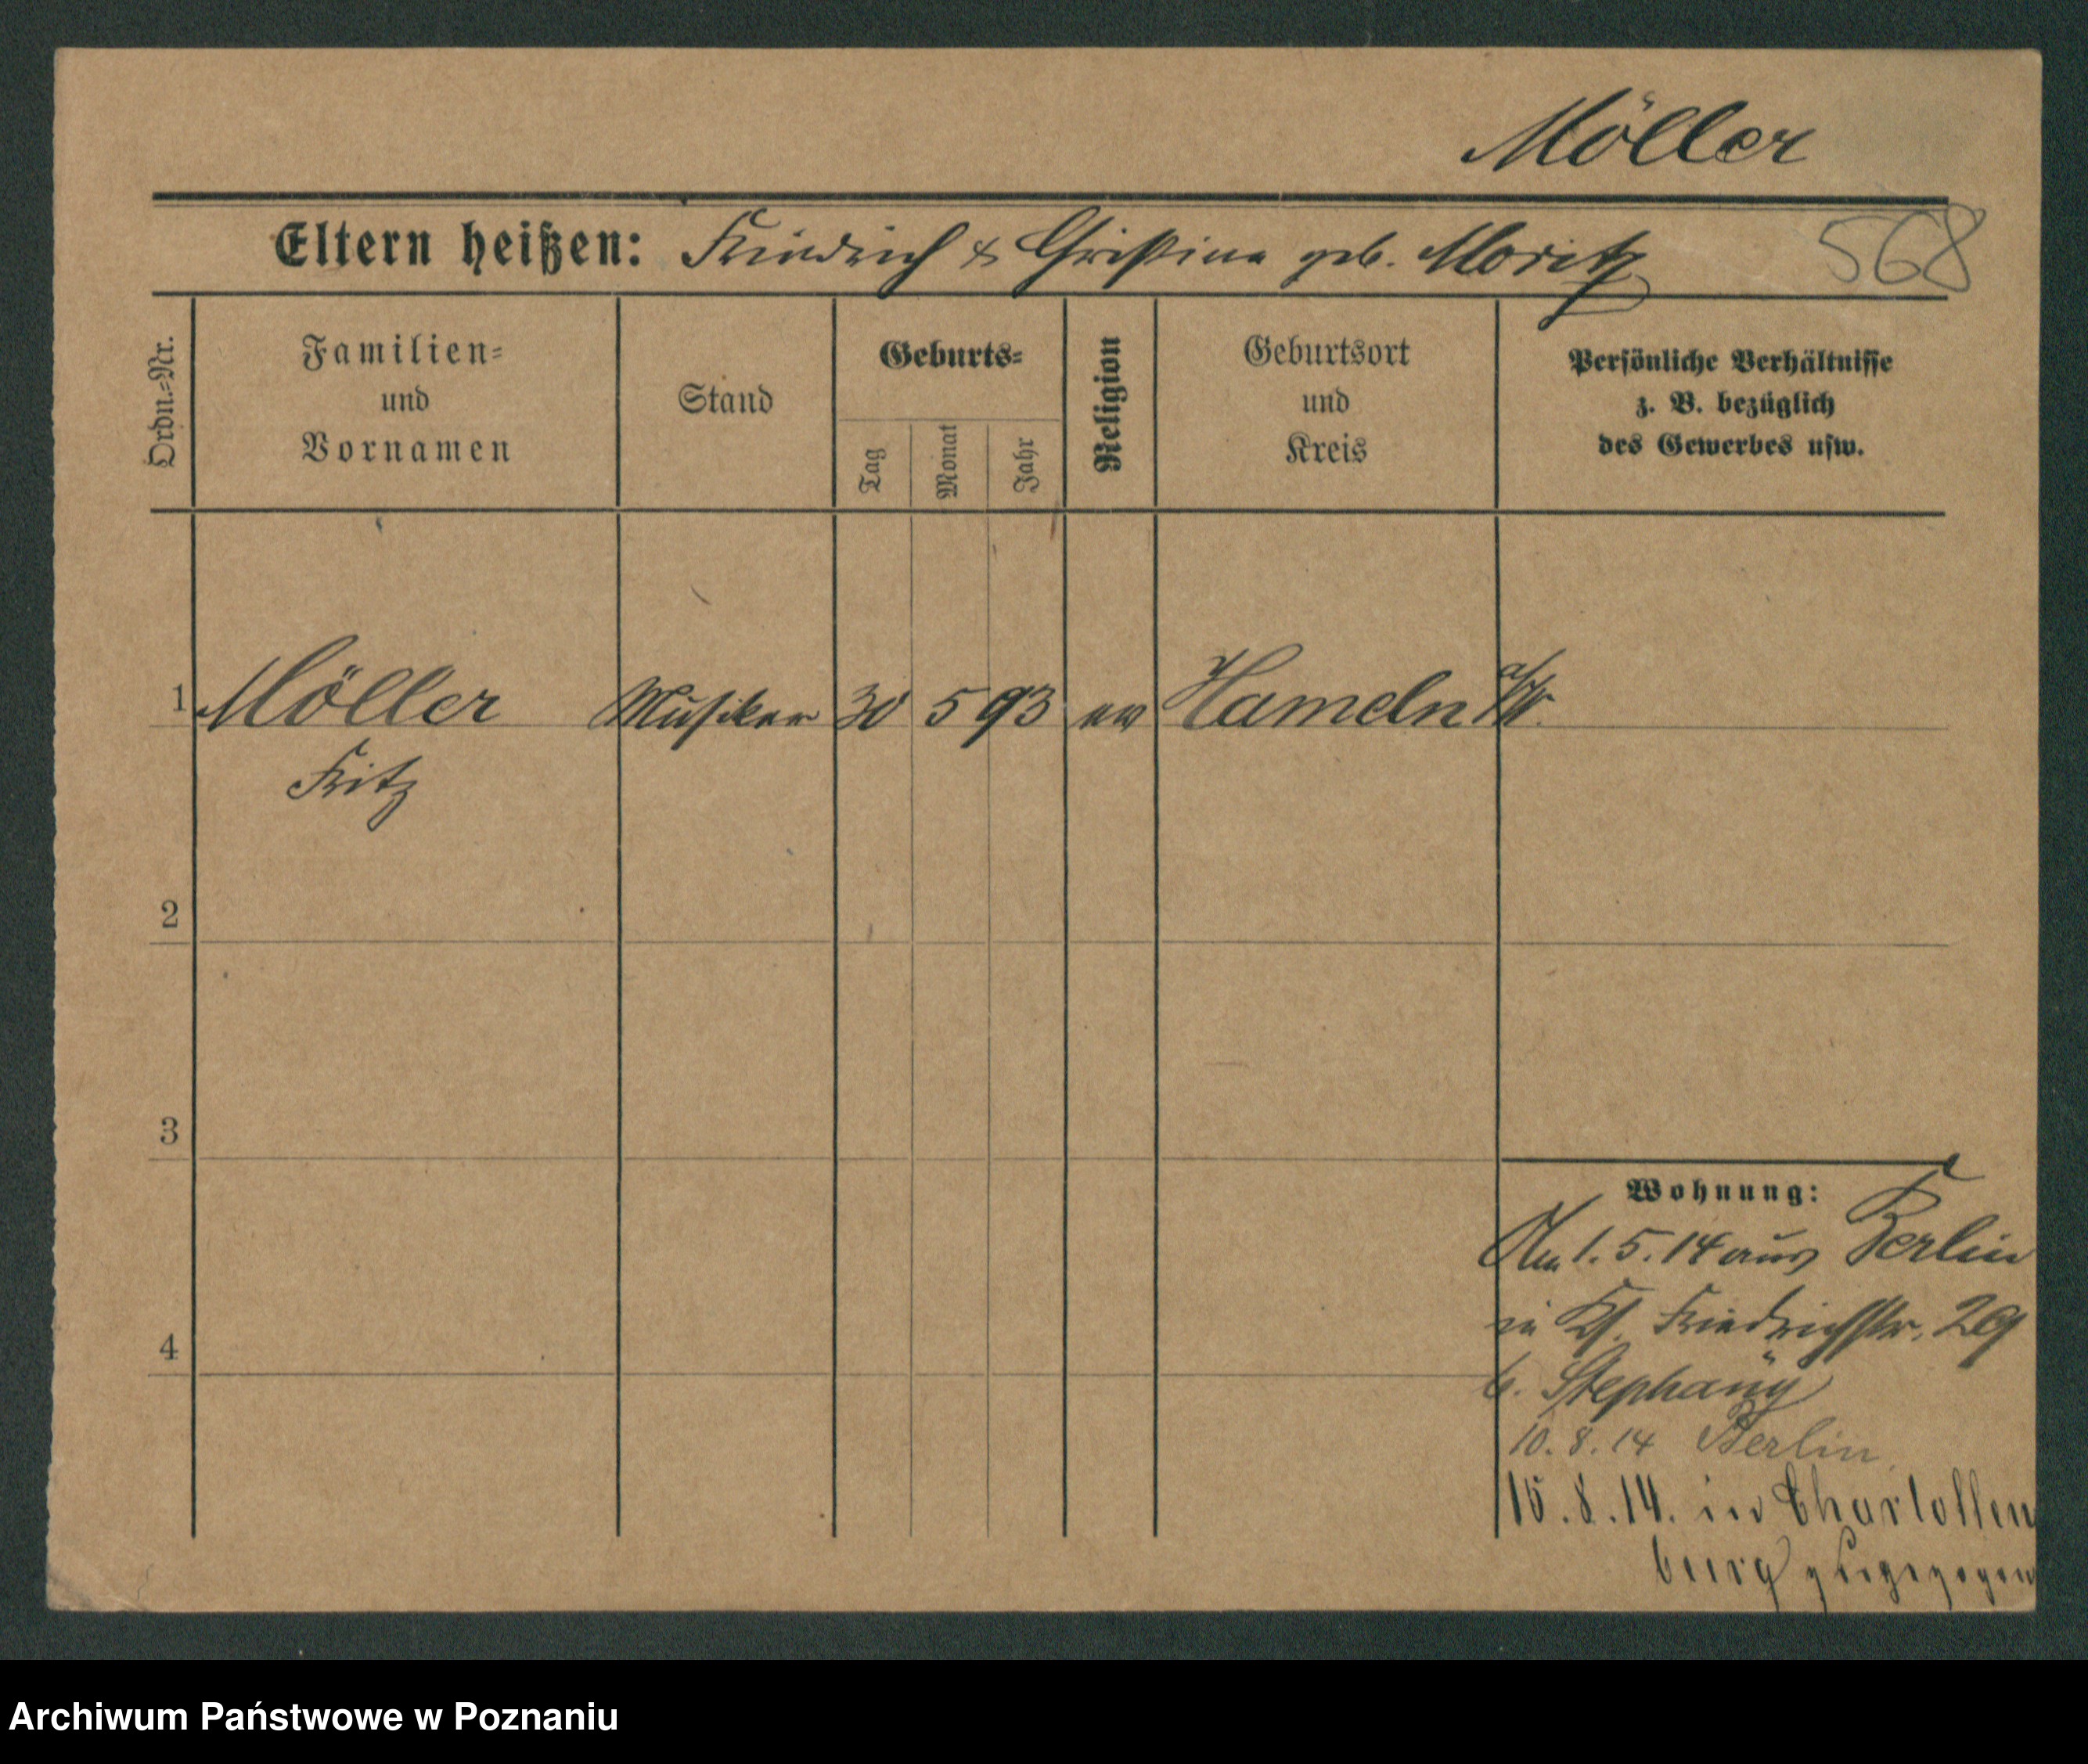 Möller
Eltern heißen: Friedrich & Christine geb. Moritz
568
Ordn.=Nr.
Familien=
und
Vornamen
Stand
Geburts=
Tag
Monat
Jahr
Religion
Geburtsort
und
Kreis
Persönliche Verhältnisse
z. B. bezüglich
des Gewerbes usw.
1 Möller Musiker 30 5 93 ev Hameln a/W.
Fritz
2
3
4
Wohnung:
Am 1.5.14 aus Berlin
in Friedrichstr. 29
b. Stephany
10.8.14 Berlin
15.8.14. in Charlotten
burg zugezogen
Archiwum Państwowe w Poznaniu